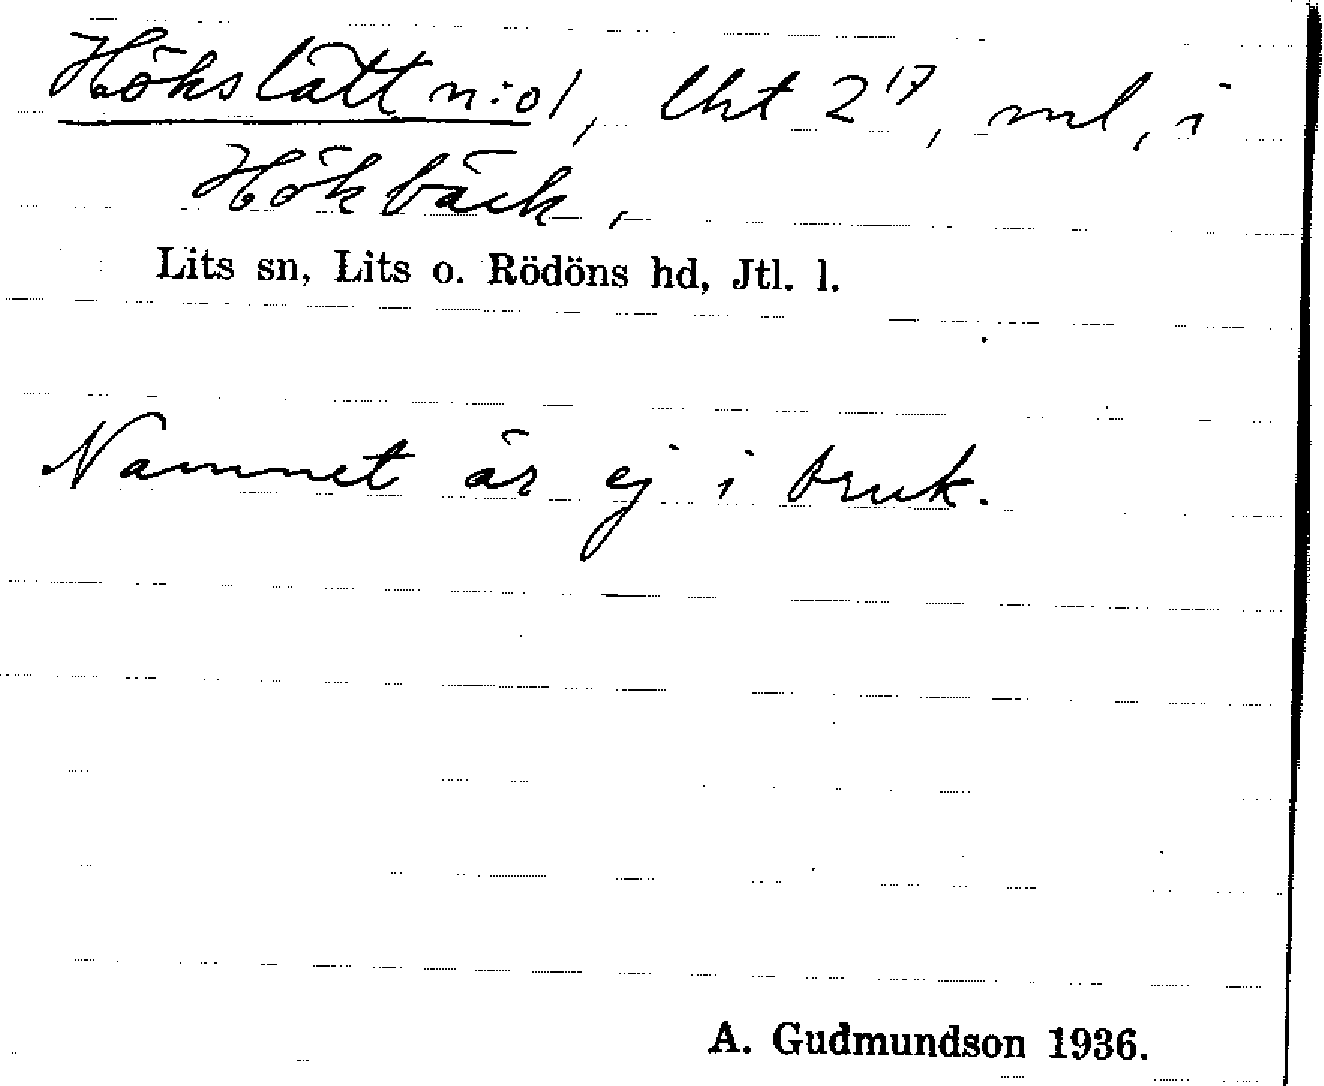 Hökslätt n:o 1, lht 2¹⁷, ml, i
Hökbäck,
Lits sn, Lits o. Rödöns hd, Jtl. l.
Namnet är ej i bruk.
A. Gudmundson 1936.